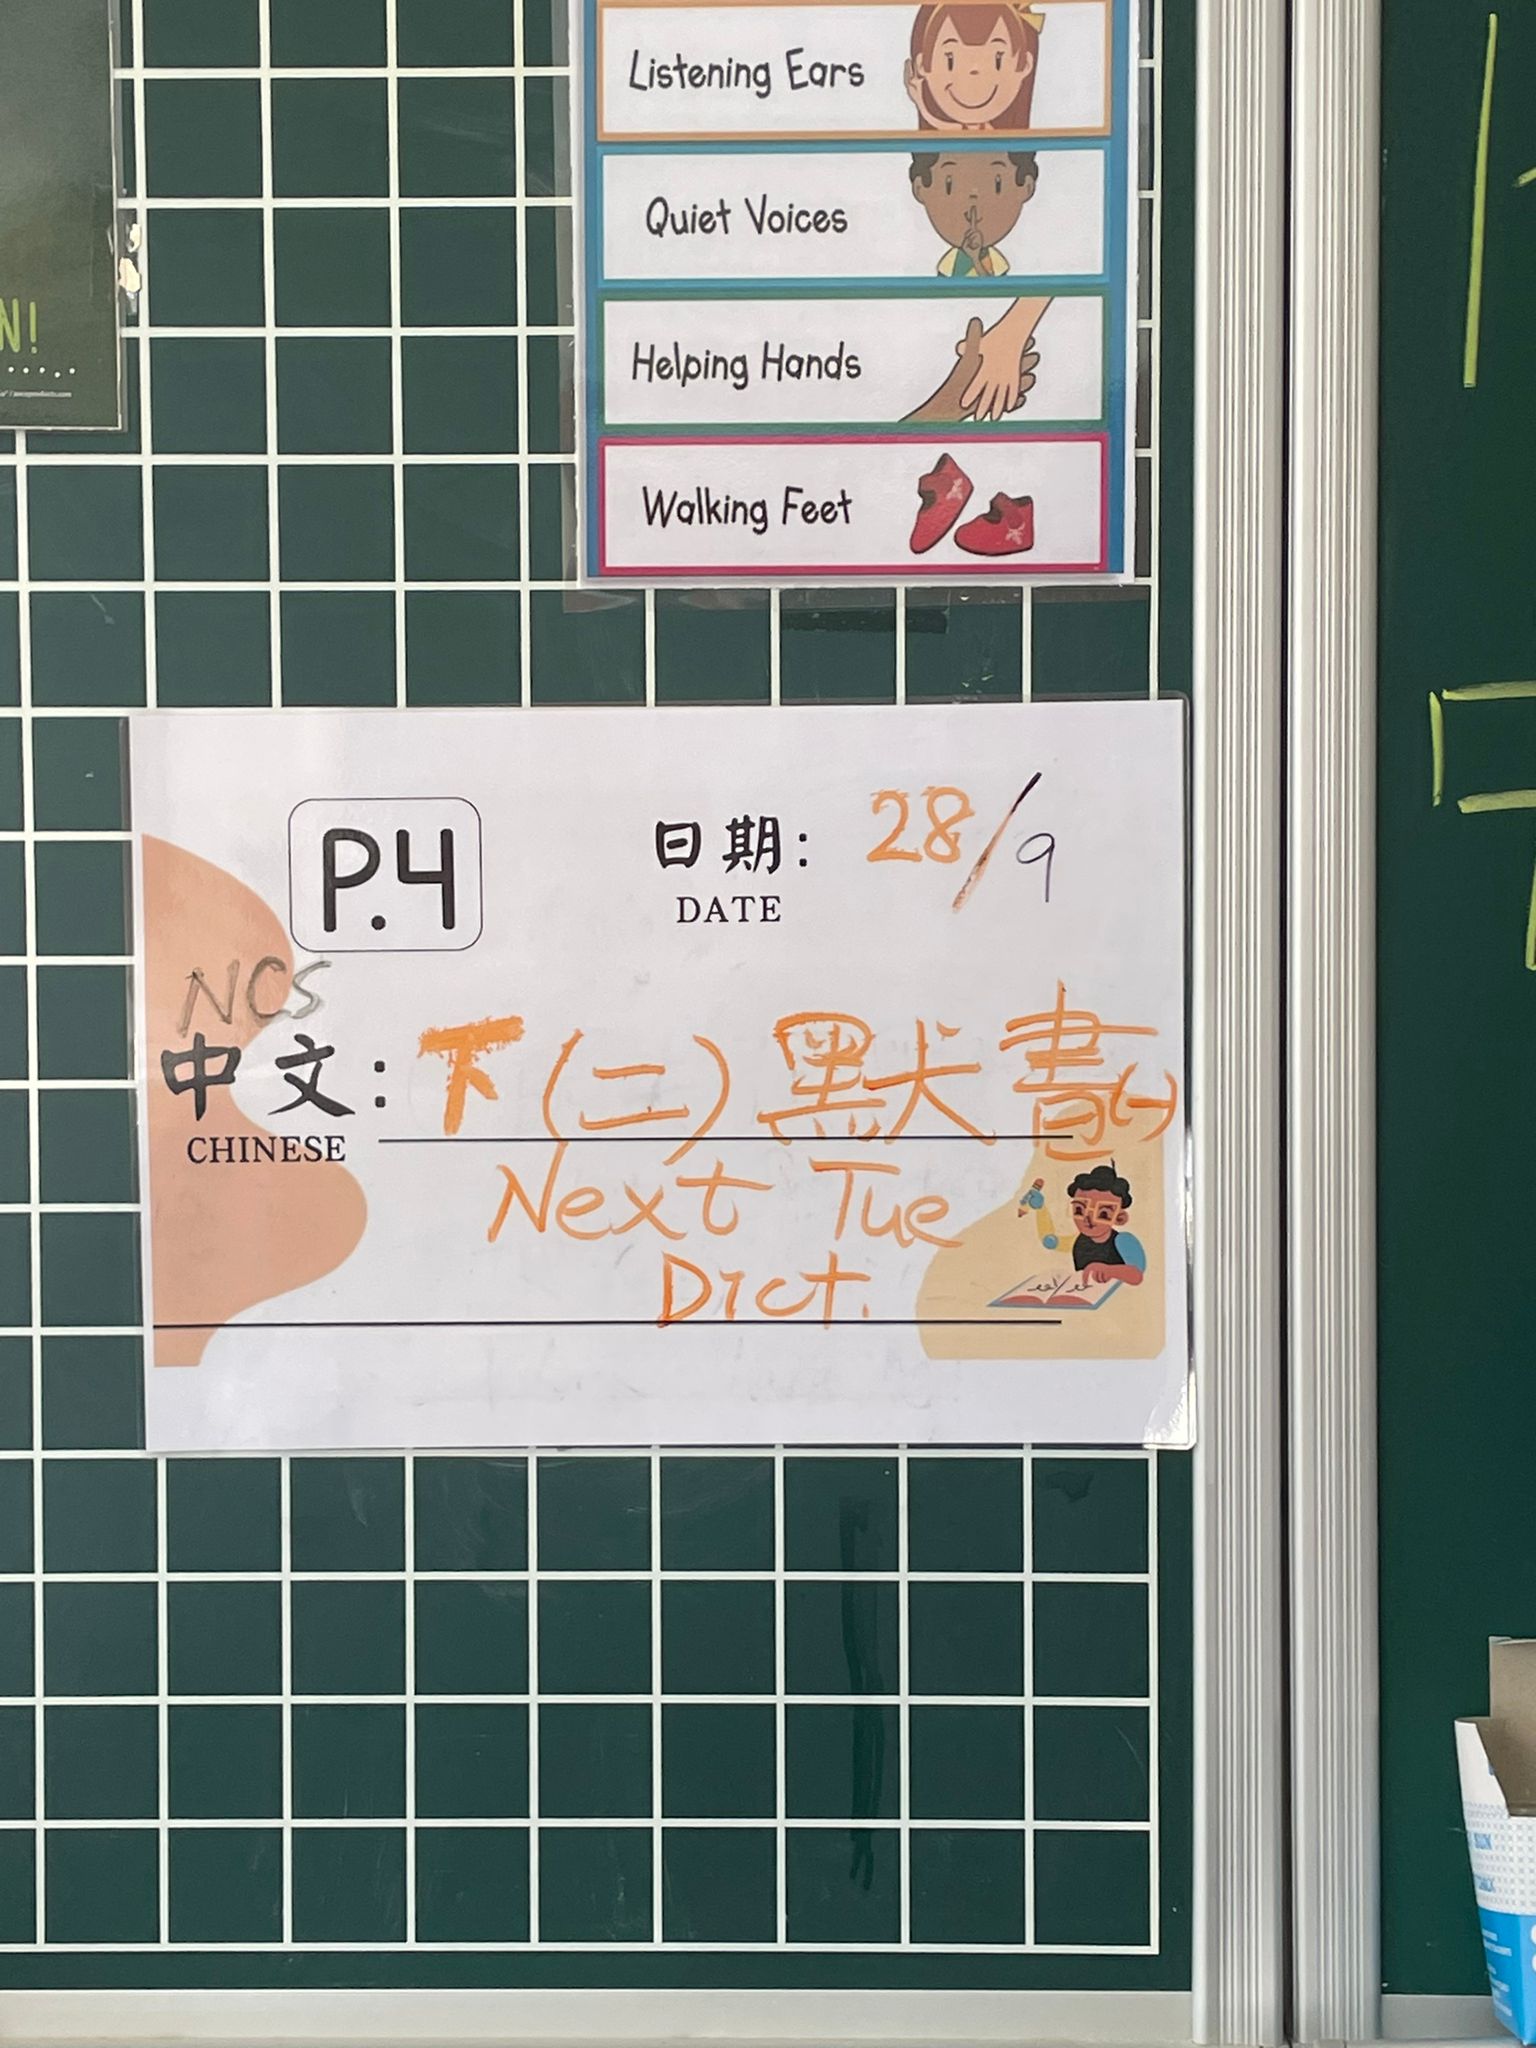 Listening Ears
Quiet Voices
Helping Hands
Walking Feet
N!
P.4
日期: 28/9
DATE
NCS
中文: 下(二) 默書(一)
CHINESE
Next Tue
Dict.